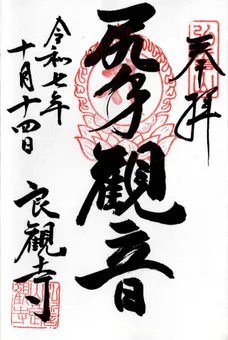 奉拝
聖観音
令和七年
十月十四日
良観寺